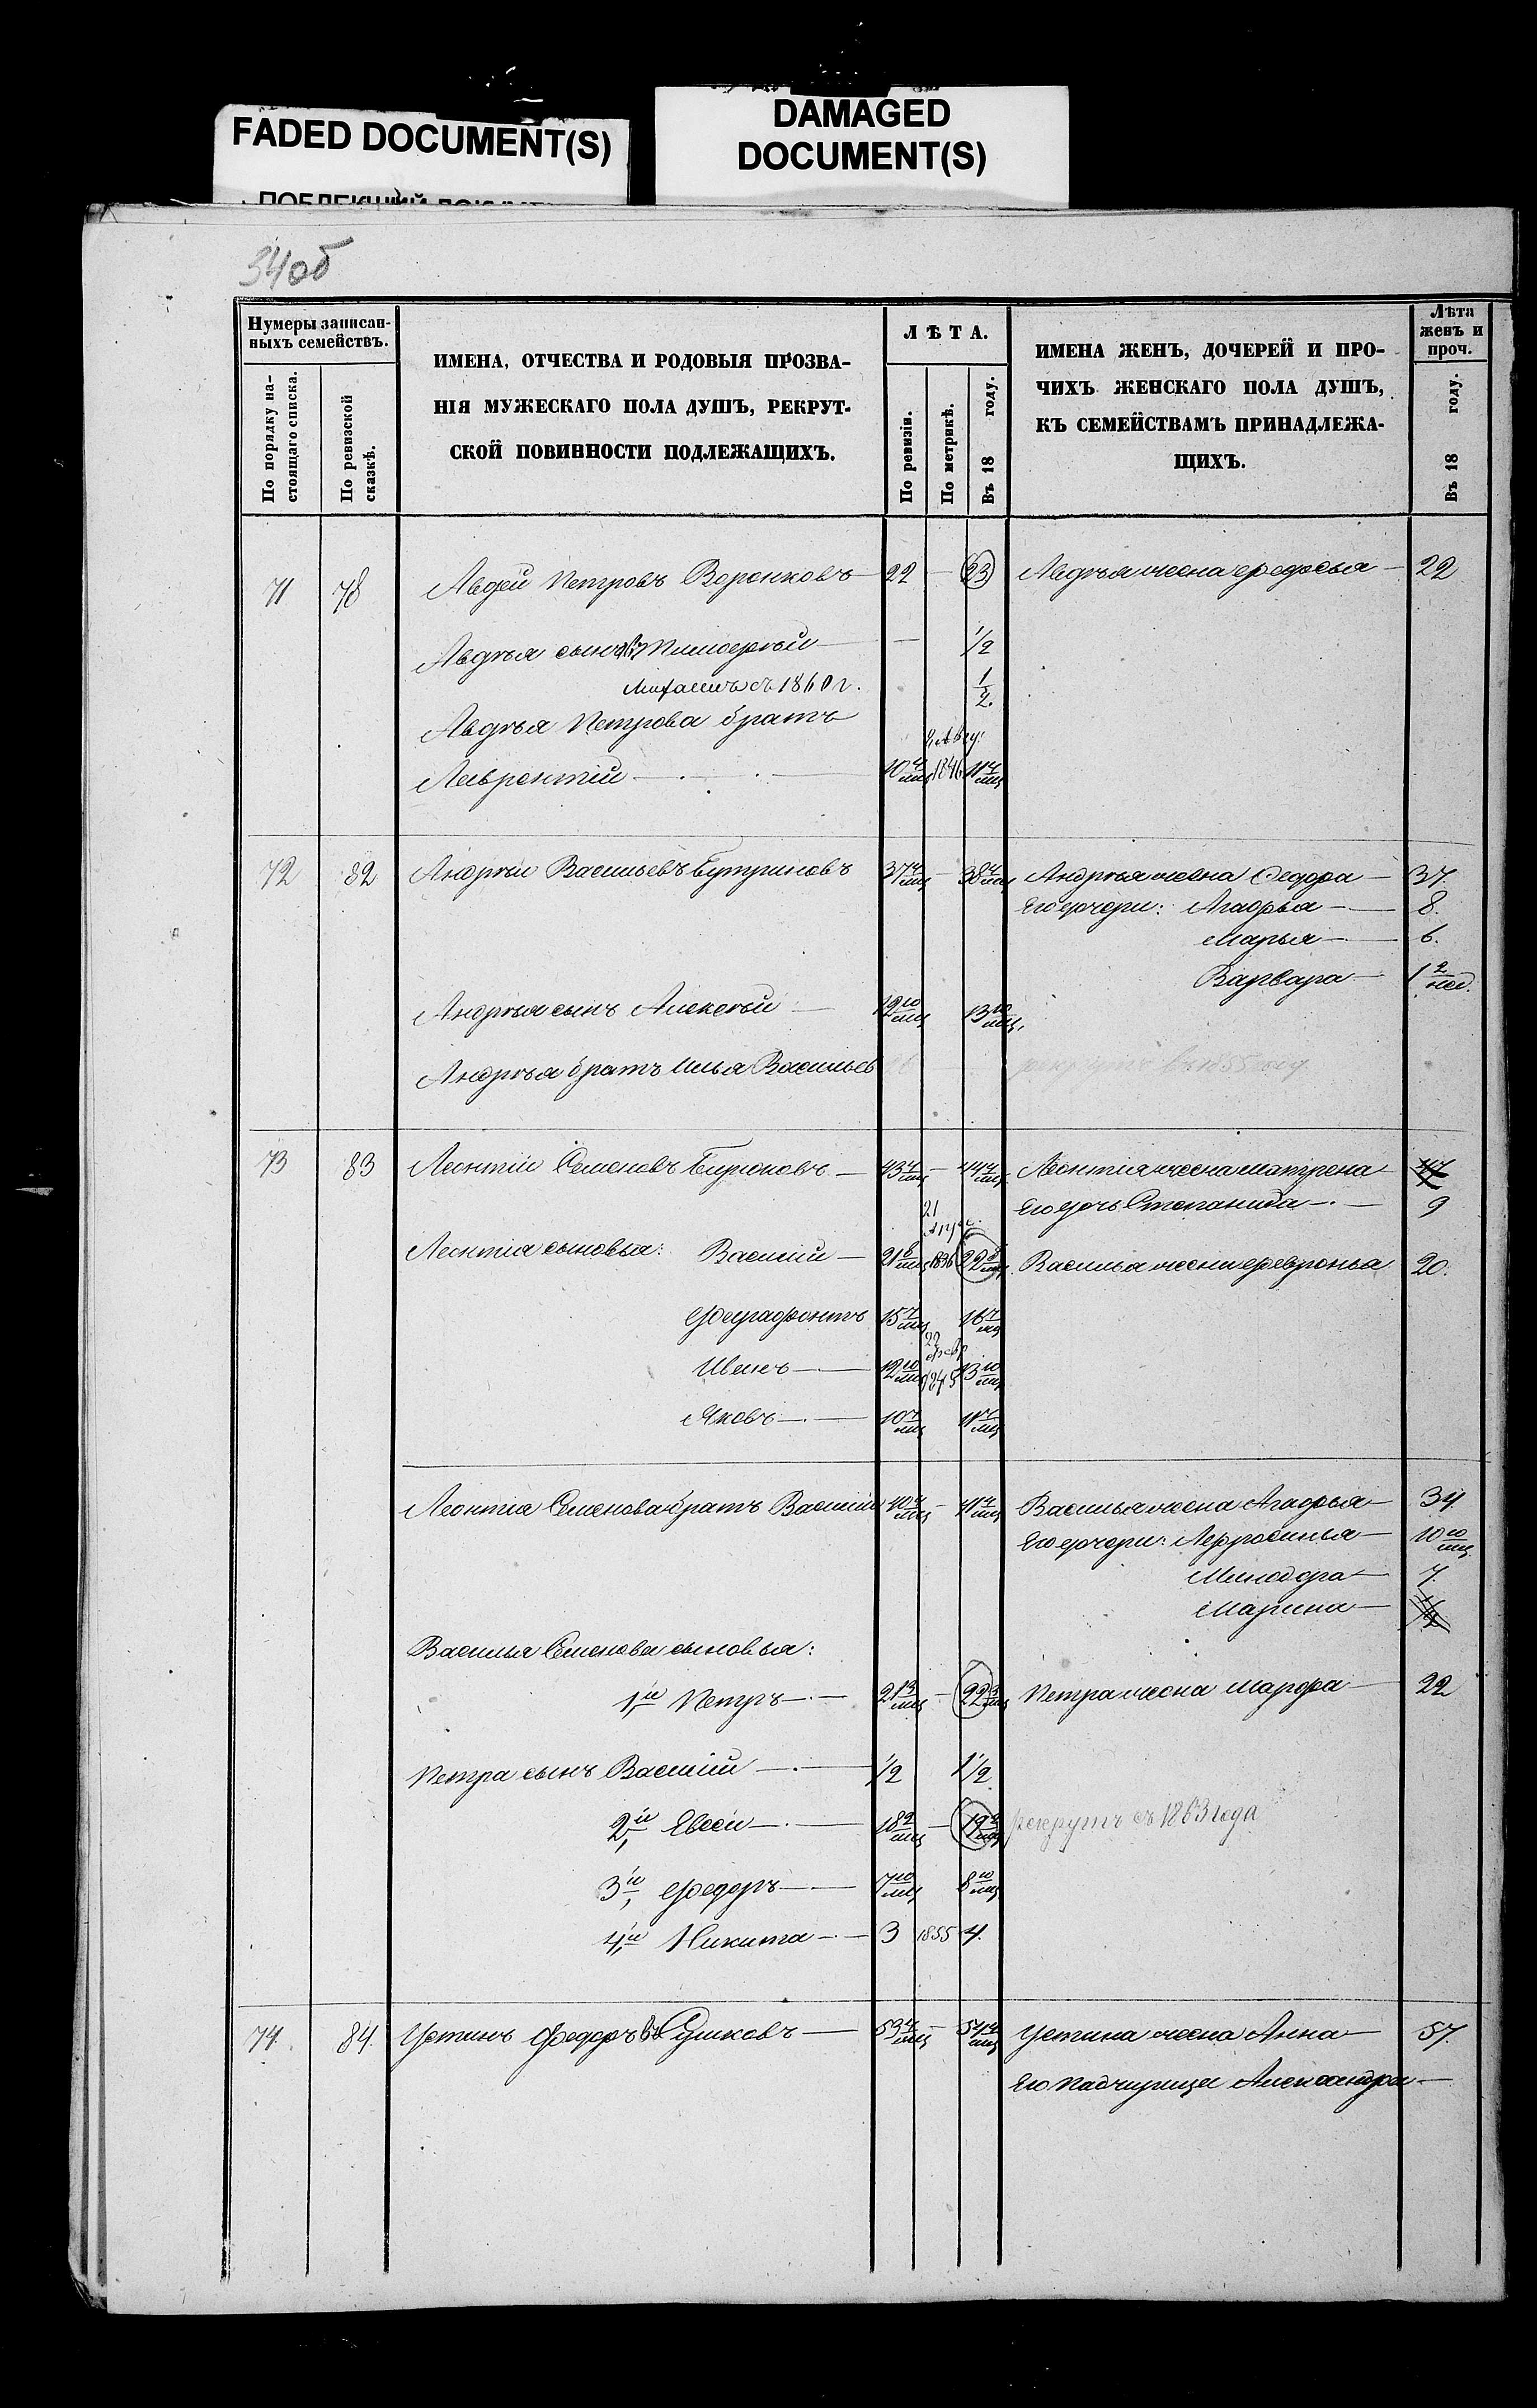 FADED DOCUMENT(S)
DAMAGED
DOCUMENT(S)
34об
Нумеры записан-
ныхъ семействъ.
По порядку на-
стоящаго списка.
По ревизской
сказкѣ.
ИМЕНА, ОТЧЕСТВА И РОДОВЫЯ ПРОЗВА-
НІЯ МУЖЕСКАГО ПОЛА ДУШЪ, РЕКРУТ-
СКОЙ ПОВИННОСТИ ПОДЛЕЖАЩИХЪ.
ЛѢТА.
По ревизіи.
По метрикѣ.
Въ 18 году.
ИМЕНА ЖЕНЪ, ДОЧЕРЕЙ И ПРО-
ЧИХЪ ЖЕНСКАГО ПОЛА ДУШЪ,
КЪ СЕМЕЙСТВАМЪ ПРИНАДЛЕЖА-
ЩИХЪ.
Лѣта
женъ и
проч.
Въ 18 году.
71 78 Авдей Петровъ Воронковъ 22 — 23 Авдѣя жена Федосья — 22
Авдѣя сынъ Тимофей — — 1/2
Михаилъ съ 1860 г. 1/2.
Авдѣя Петрова братъ
Лаврентій — 10 4/мц 1846 11 4/мц
72 82 Андрей Васильевъ 37 4/мц — 38 4/мц Андрея жена Федора — 37.
Его дочери: Агафья — 8.
Марья — 6.
Варвара — 1 2/нед.
Андрея сынъ Алексей — 12 10/мц 13 10/мц.
Андрея братъ Илья Васильев рекрутъ въ 1855 год
73 83 Леонтій Семеновъ Бирюковъ — 43 4/мц — 44 4/мц Леонтія жена Матрена 47
Его дочь Степанида — 9
Леонтія сыновья: Василій — 21 8/мц 1836 22 8/мц. Василья жена Февронья 20.
Ферафонтъ 15 7/мц 16 7/мц
Иванъ — 12 10/мц 22 Февр 1845 13 10/мц
Яковъ — 10 7/мц 11 7/мц
Леонтія Семенова братъ Василій 40 4/мц — 41 4/мц Василья жена Агафья — 34
Его дочери: — 10 10/мц.
Минодора — 7.
Марина — 1/2
Василья Семенова сыновья:
1й, Петръ — 21 3/мц — 22 3/мц Петра жена Марфа — 22
Петра сынъ Василій — 1/2 1 1/2
2й, Евсей — 18 2/мц — 19 2/мц рекрутъ съ 1863 года
3й, Федоръ — 7 10/мц 8 10/мц
4й, Никита — 3 1855 4.
74. 84. Устинъ Федоровъ Сушковъ — 53 4/мц — 54 4/мц Устина жена Анна — 57.
Его падчирица Александра —